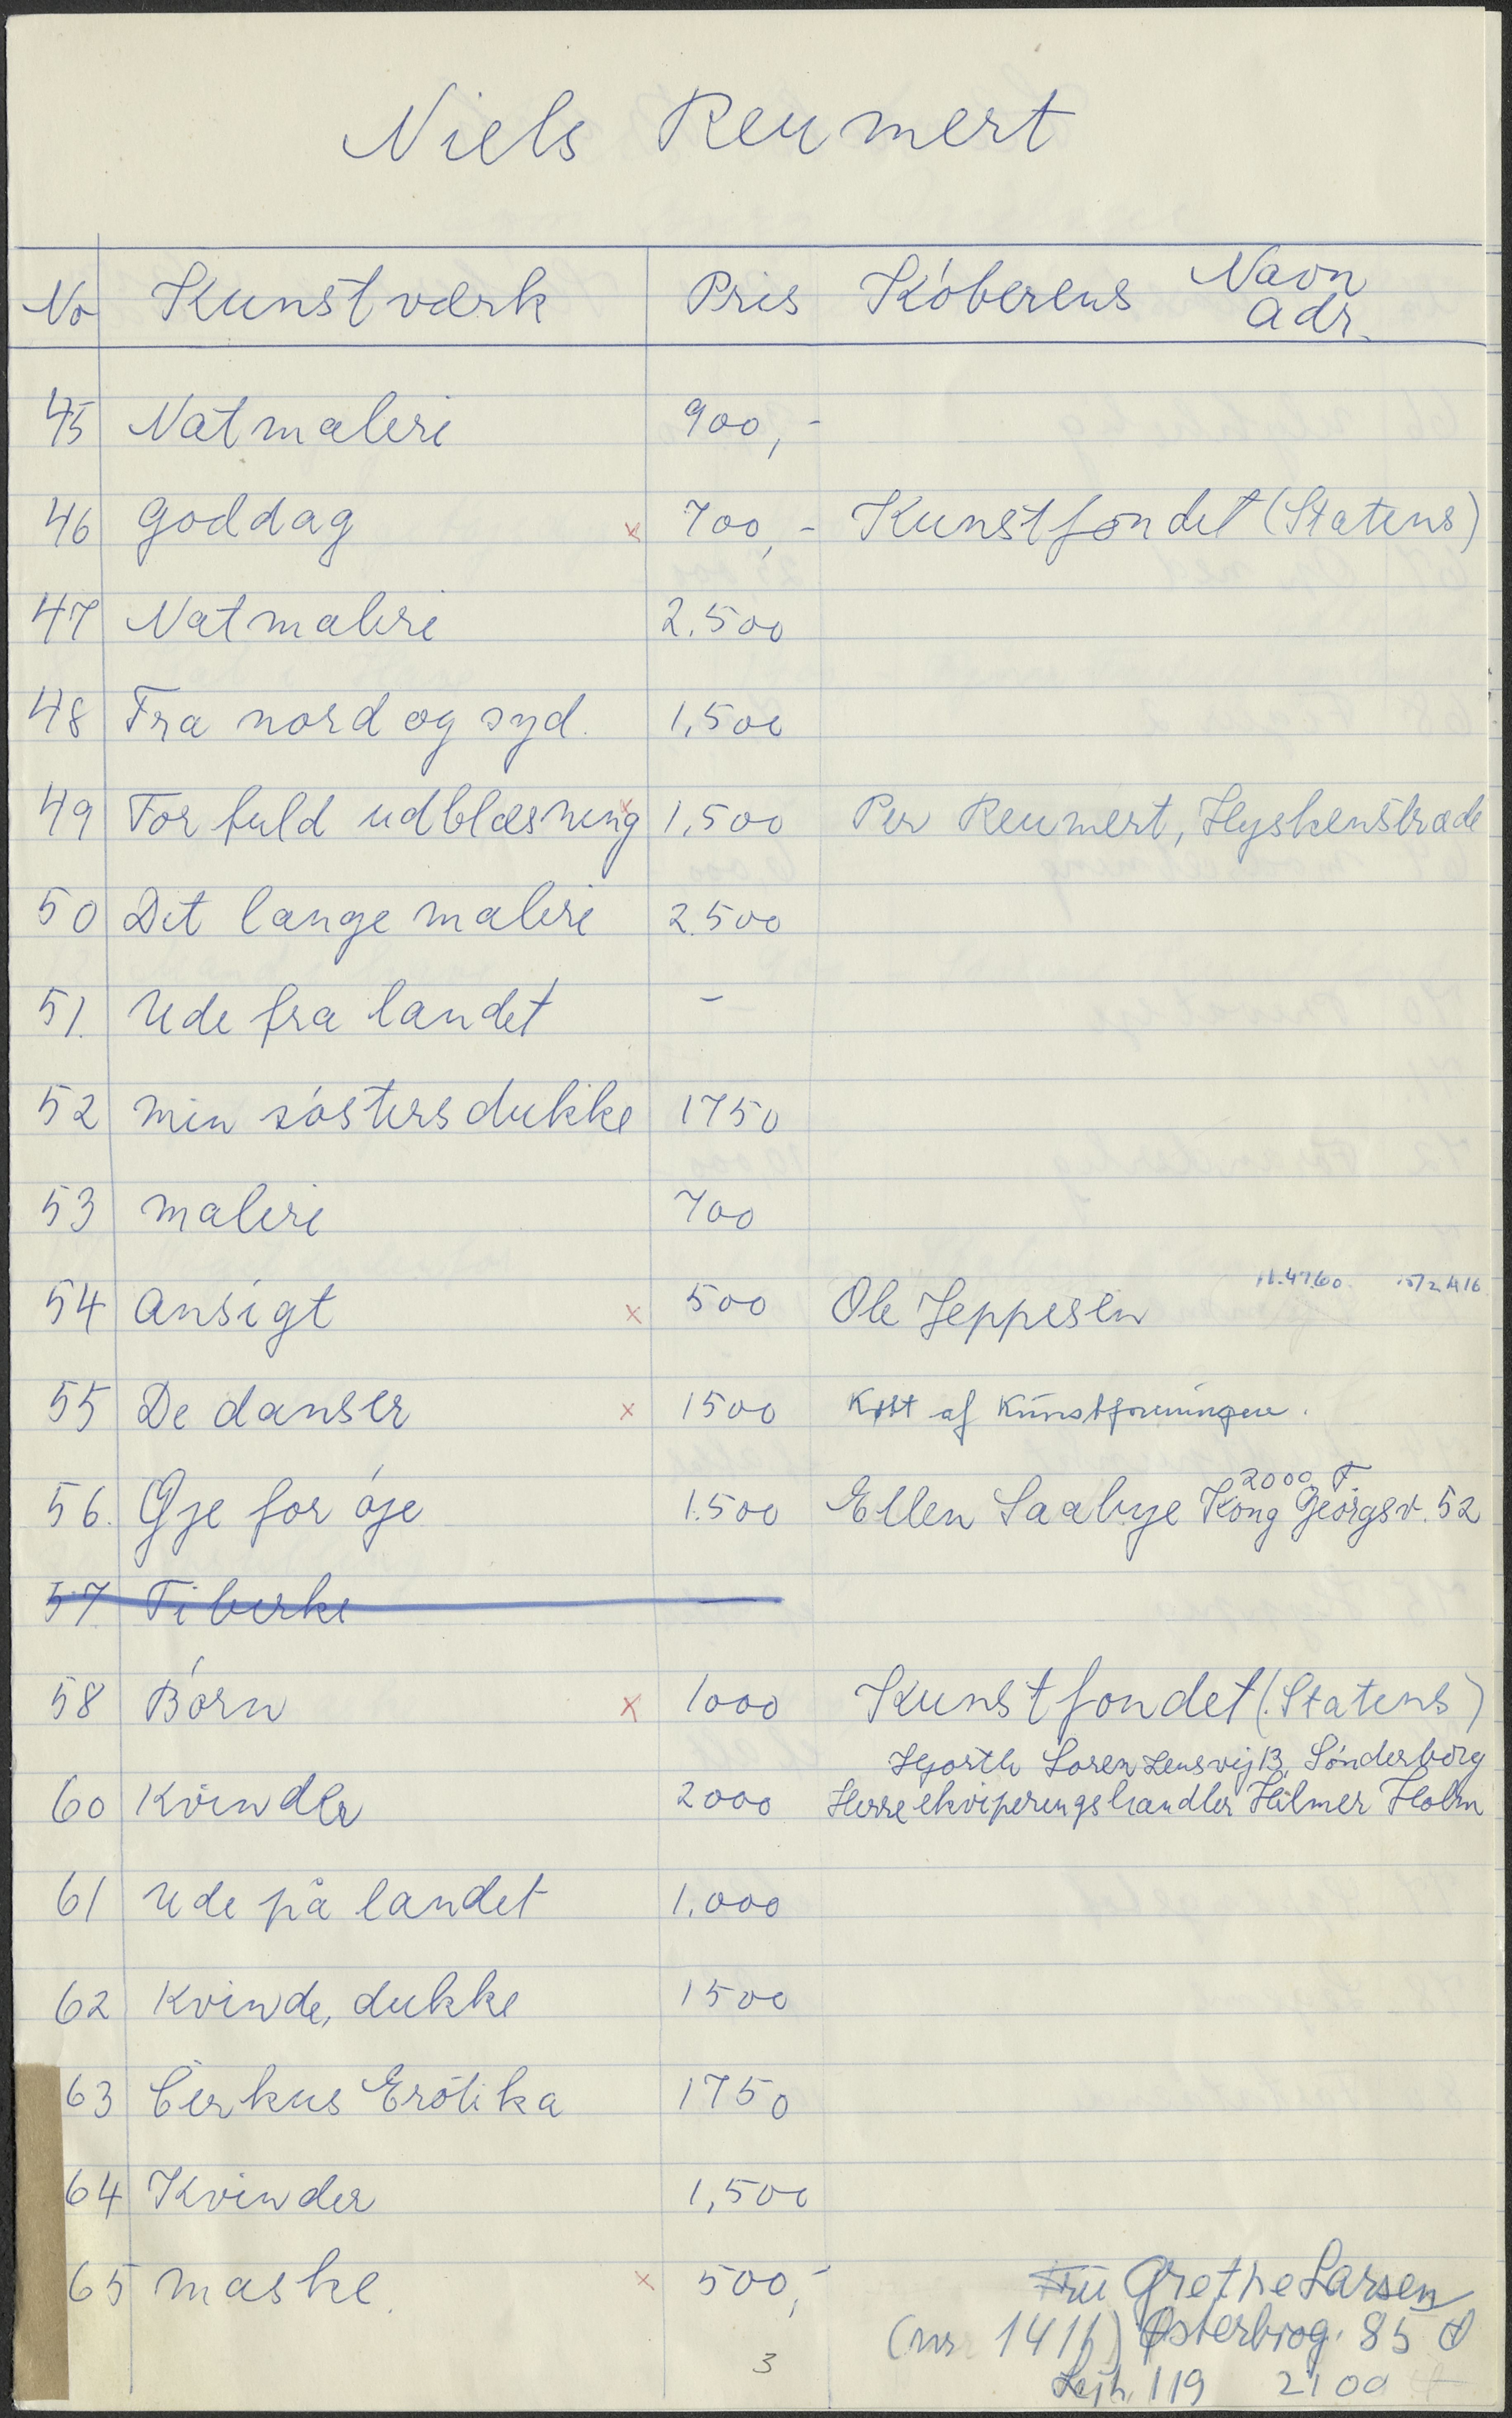 Niels Reumert
No Kunstværk Pris Köberens Navn
Adr.
45 Natmaleri 900,-
46 Goddag x 700,- Kunstfondet (Statens)
47 Natmaleri 2.500
48 Fra nord og syd. 1,500
49 For fuld udblæsning x 1,500 Per Reumert, Hyskenstræde
50 Det lange maleri 2.500
51. Ude fra landet -
52 min sósters dukke 1750
53 maleri 700
54 Ansigt x 500 Ole Jeppesen
55 De danser x 1500 Købt af Kunstforeningen.
2000 F
56. Øje for óje 1.500 Ellen Saabye Kong Georgsv. 52
57 Tiberke —
58 Börn x 1000 Kunstfondet (Statens)
Hjorth Lorenzensvej 13, Sönderborg
60 Kvinder 2000 Herreekviperingshandler Hilmer Holm
61 Ude på landet 1.000
62 Kvinde, dukke 1500
63 Cirkus Erotika 1750
64 Kvinder 1,500
65 maske. x 500,- Fru Grethe Larsen
(nr 1416) Østerbrog. 85 Ø
3
Lejh. 119 2100